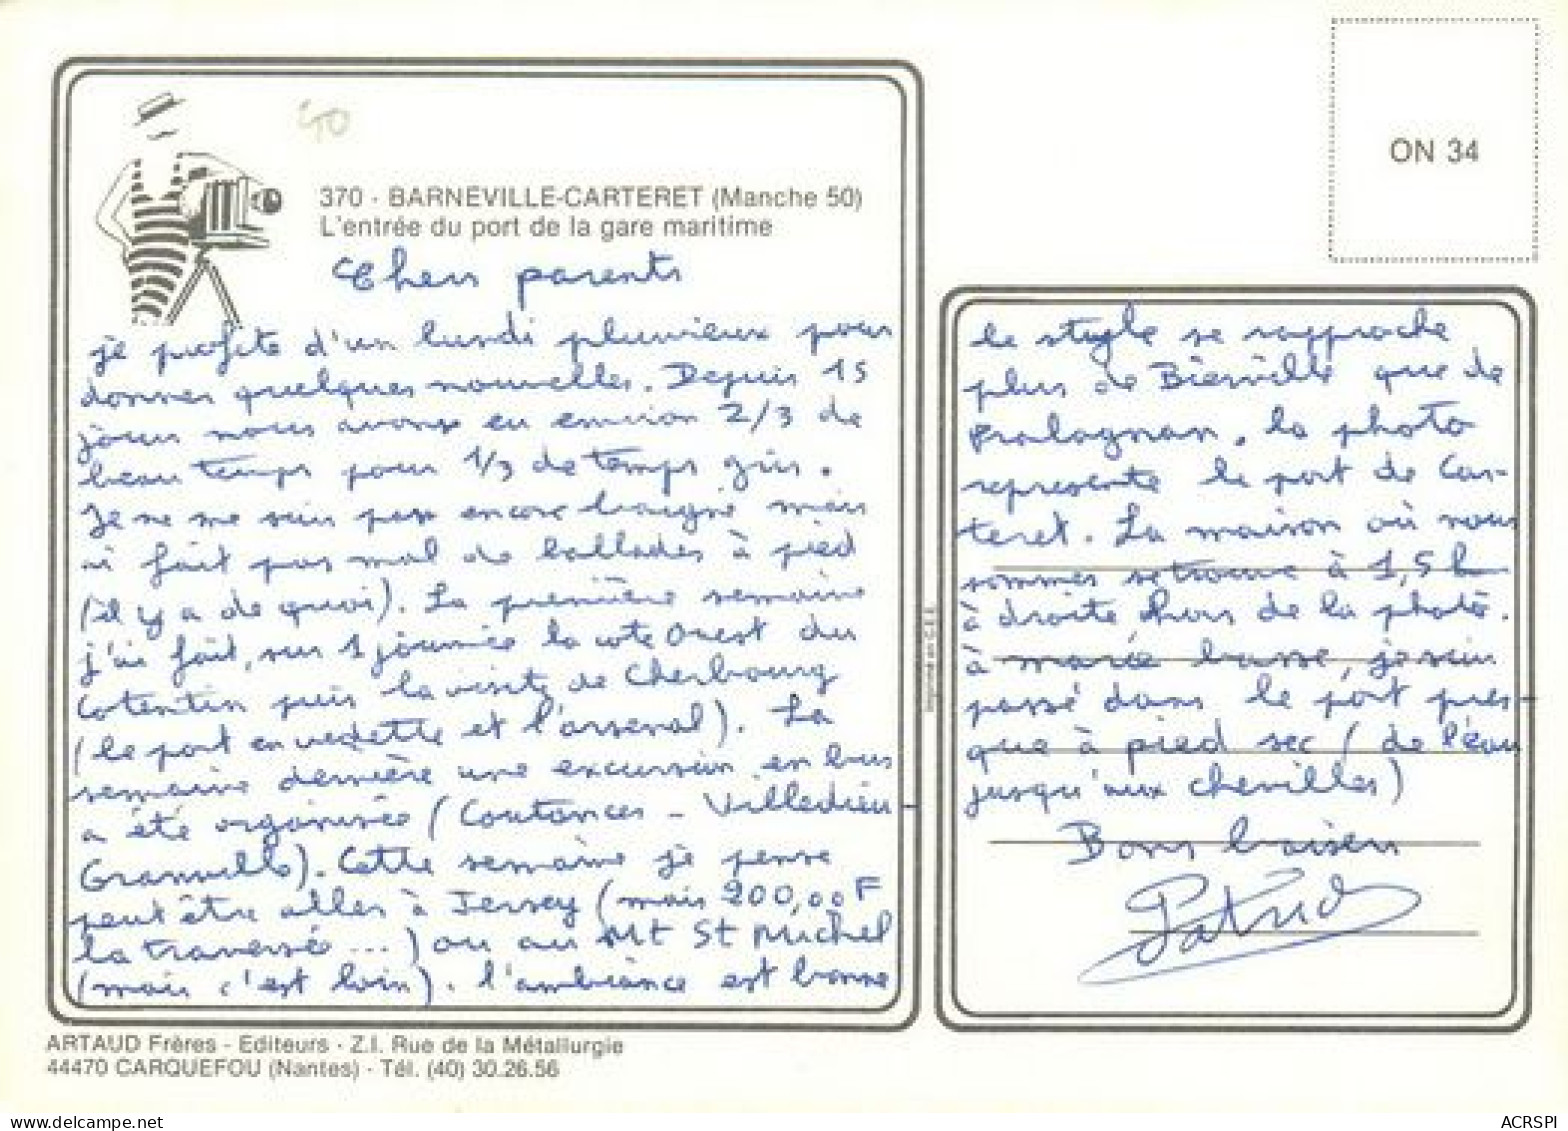 40
370 - BARNEVILLE-CARTERET (Manche 50)
L'entrée du port de la gare maritime
Chers parents
je profite d'un lundi pluvieux pour
donner quelques nouvelles. Depuis 15
jours nous avons eu environ 2/3 de
beau temps pour 1/3 de temps gris.
Je ne me suis pas encore baigné mais
ai fait pas mal de ballades à pied
(il y a de quoi). La première semaine
j'ai fait, sur 1 journée la cote Ouest du
Cotentin puis la visite de Cherbourg
(le port en vedette et l'arsenal). La
semaine dernière une excursion en bus
a été organisée (Coutances - Villedieu -
Granville). Cette semaine je pense
peut être aller à Jersey (mais 200,00F
la traversée ...) ou au Mt St Michel
(mais c'est loin). l'ambiance est bonne
ON 34
le style se rapproche
plus de Bierville que de
Pralognan. la photo
represente le port de Car-
teret. La maison où nous
sommes se trouve à 1,5 k
à droite hors de la photo.
à marée basse, je suis
passé dans le port pres-
que à pied sec (de l'eau
jusqu'aux chevilles)
Bons baisers
Patrick
Imprimé en C.E.E.
ARTAUD Frères - Editeurs - Z.I. Rue de la Métallurgie
44470 CARQUEFOU (Nantes) - Tél. (40) 30.26.56
delcampe.net
ACRSPI